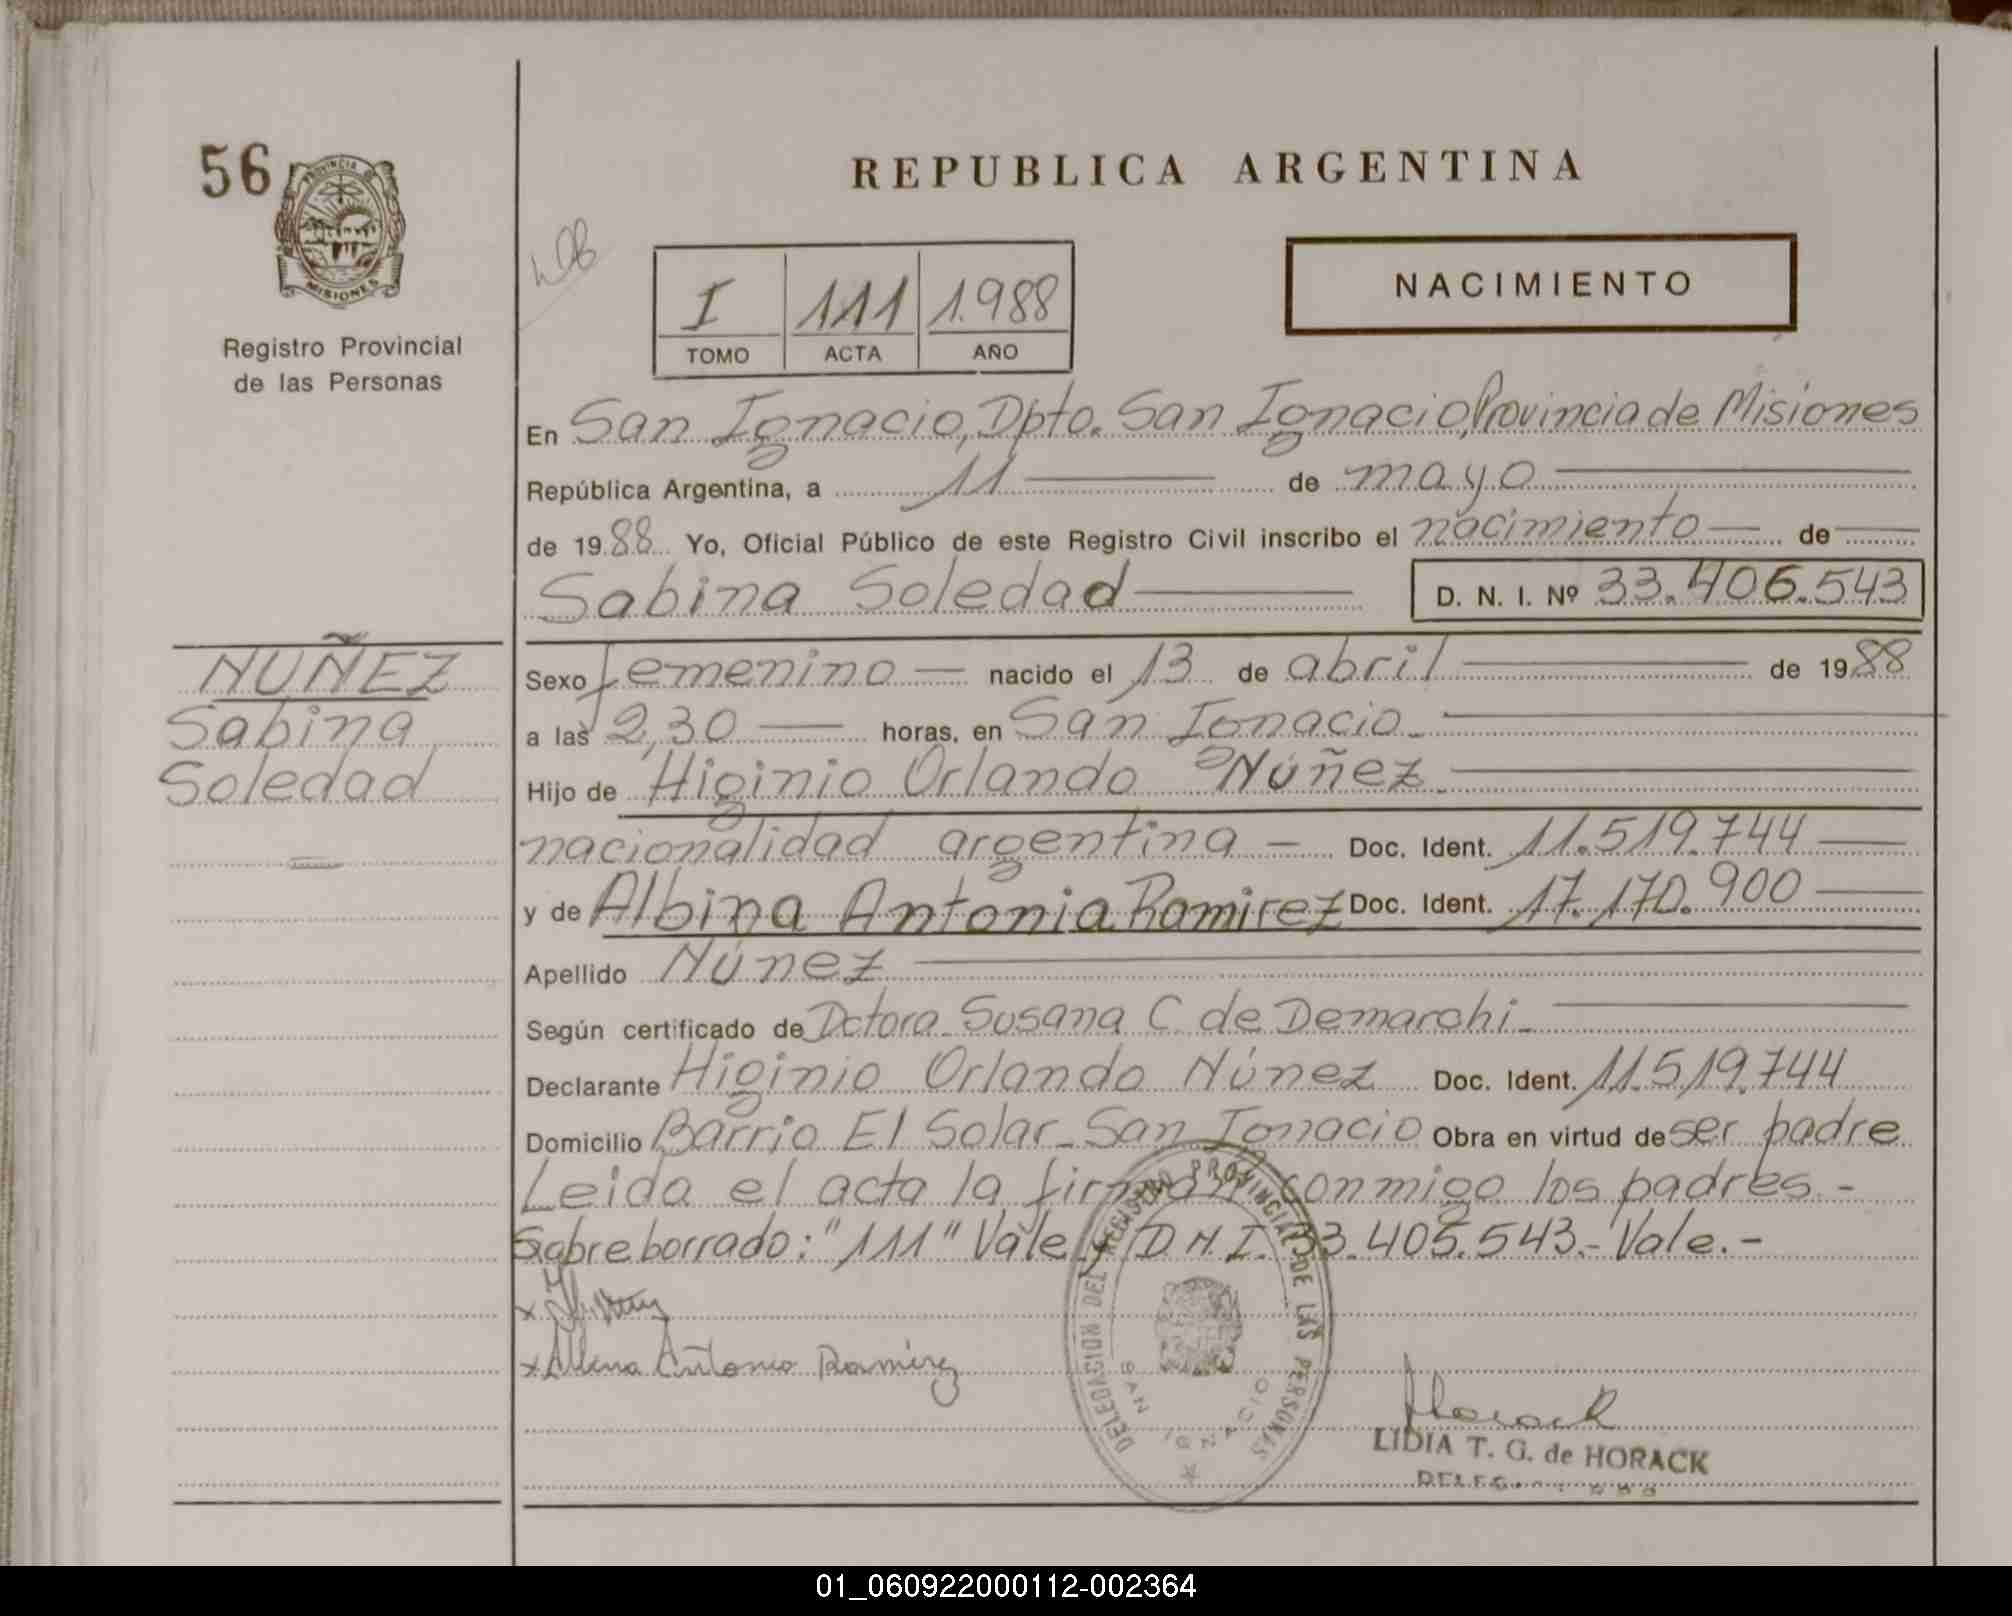 56
PROVINCIA DE
MISIONES
Registro Provincial
de las Personas
REPUBLICA ARGENTINA
NACIMIENTO
I 111 1.988
TOMO ACTA AÑO
En San Ignacio, Dpto. San Ignacio, Provincia de Misiones
República Argentina, a 11 de mayo
de 1988 Yo, Oficial Público de este Registro Civil inscribo el nacimiento de
Sabina Soledad D. N. I. Nº 33.406.543
NUÑEZ
Sabina
Soledad
Sexo femenino nacido el 13 de abril de 1988
a las 2,30 horas, en San Ignacio
Hijo de Higinio Orlando Núñez
nacionalidad argentina Doc. Ident. 11.519.744
y de Albina Antonia Ramirez Doc. Ident. 17.170.900
Apellido Núnez
Según certificado de Dctora Susana C de Demarchi
Declarante Higinio Orlando Núnez Doc. Ident. 11.519.744
Domicilio Barrio El Solar - San Ignacio Obra en virtud de ser padre
Leida el acta la firman conmigo los padres -
Sobreborrado: "111" Vale y D.N.I. 33.405.543.- Vale. -
x
x Albina Antonia Ramirez
DELEGACION DEL REGISTRO PROVINCIAL DE LAS PERSONAS
SAN IGNACIO
Horack
LIDIA T. G. de HORACK
01_060922000112-002364